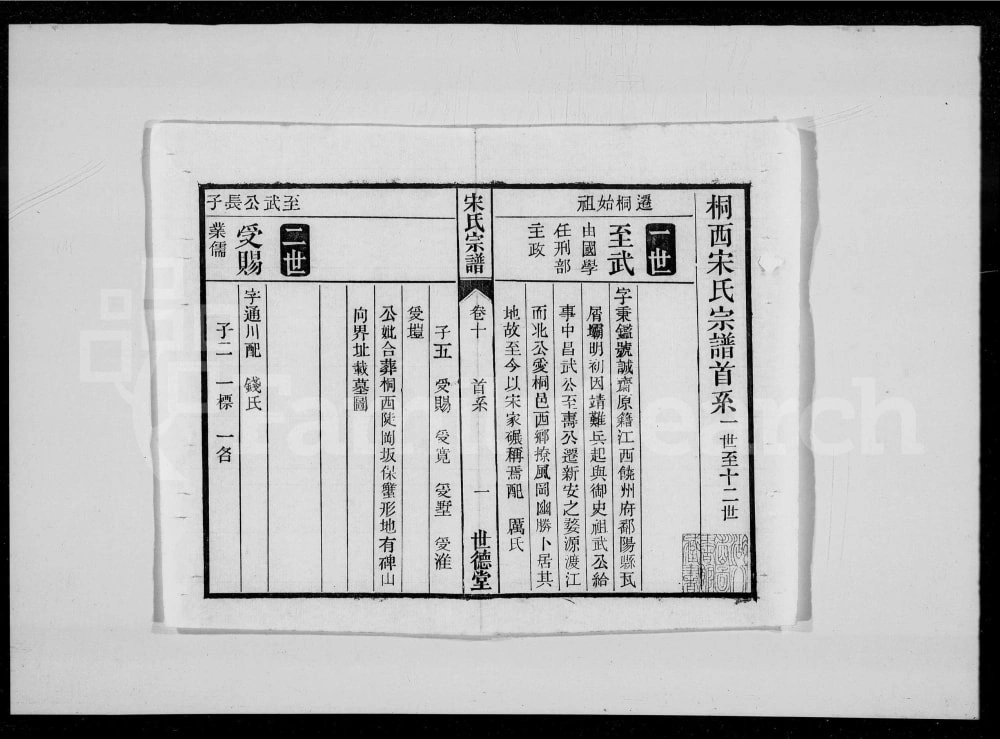 桐西宋氏宗譜首系一世至十二世
遷桐始祖
一世
至武
由國學
任刑部
主政
字秉鑑號誠齋原籍江西饒州府鄱陽縣瓦
屑壩明初因靖難兵起與御史祖武公給
事中昌武公至壽公遷新安之婺源渡江
而北公愛桐邑西鄉撩風岡幽勝卜居其
地故至今以宋家碾稱焉配 厲氏
宋氏宗譜 卷十 首系 一 世德堂
子五 受賜 受寬 受墅 受淮
受塏
公妣合葬桐西陡岡坂保蟹形地有碑山
向界址載墓圖
至武公長子
二世
受賜
業儒
字通川配 錢氏
子二 一標 一名